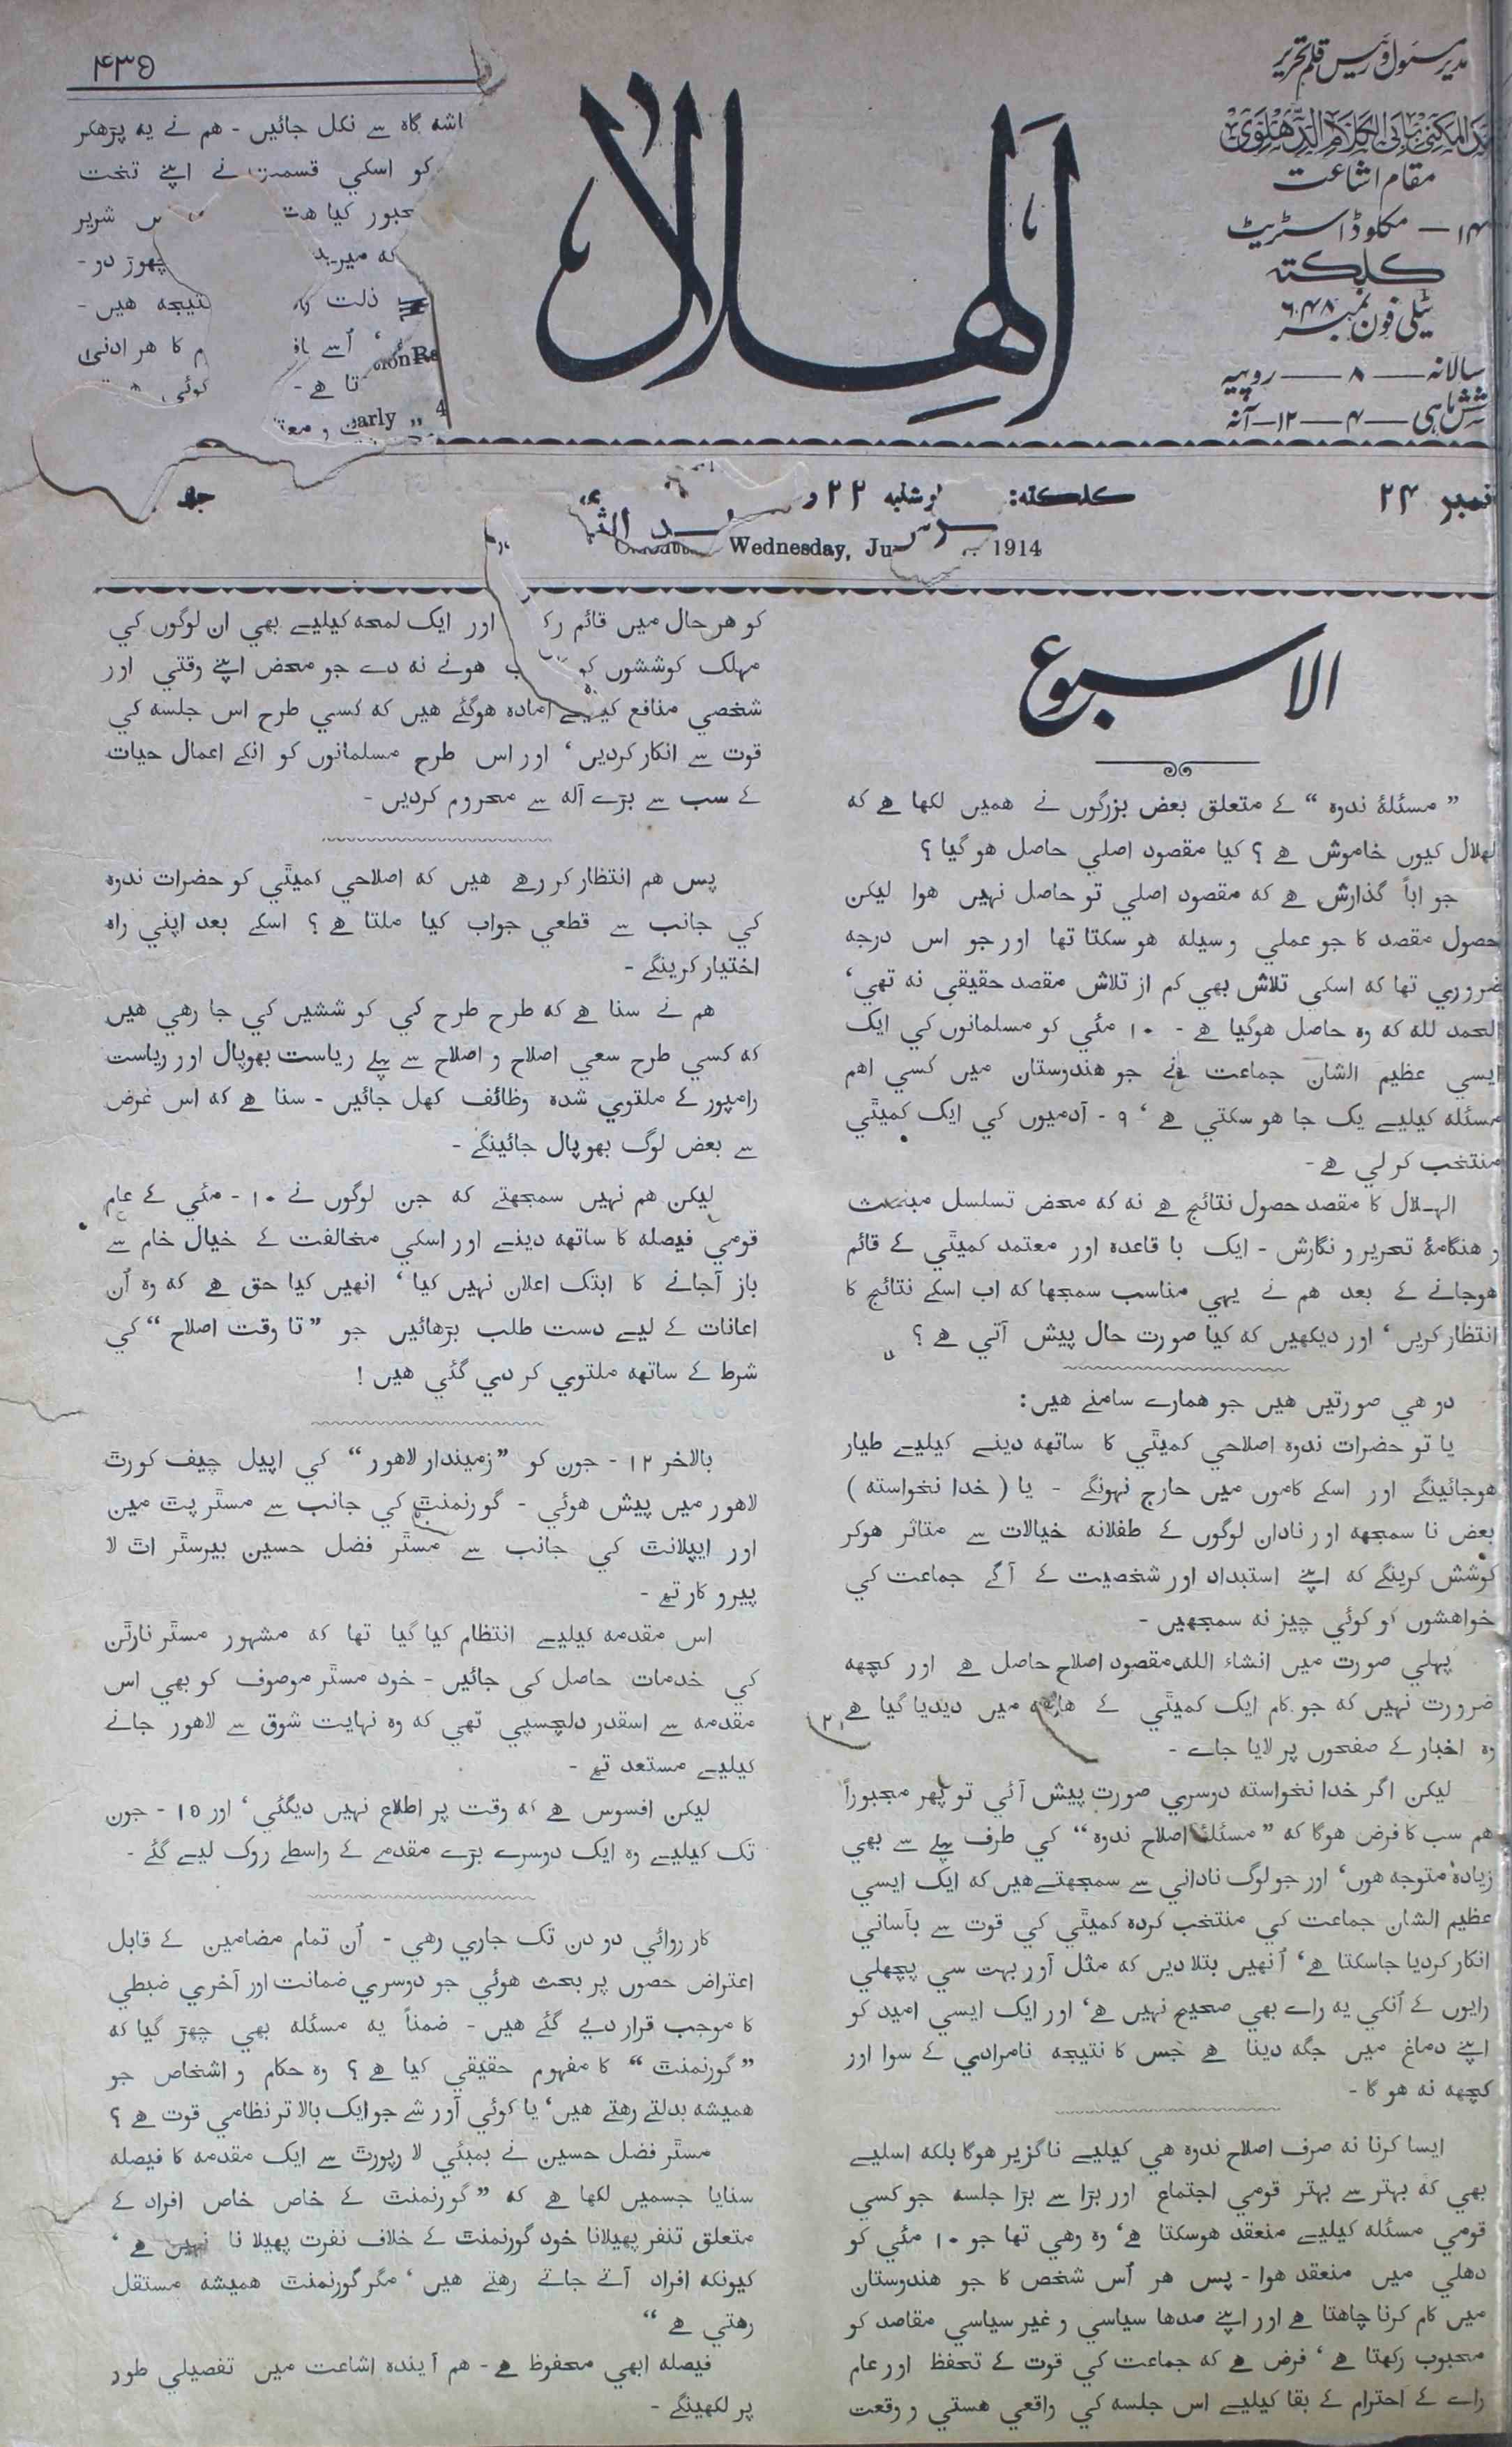 مدیر مسئول و رئیس قلم تحریر
المکنی بابی الکلام الدہلوی
مقام اشاعت
۱۴ — مکلوڈ اسٹریٹ
کلکتہ
ٹیلی فون نمبر ۶۴۸
سالانہ — ۸ — روپیہ
شش ماہی — ۴ — ۱۲ — آنہ
الهلال
۴۳۵
اشہ گاہ سے نکل جائیں - ھم نے یہ پڑھکر
کو اسکي قسمت نے اپنے تخت
شریر
چھوڑ دو -
ذلت
نتیجہ ھیں -
اُسے
کا ھر ادنیٰ
تا ھے -
کوئي
نمبر ۲۴
کلکتہ:
۲۲
Wednesday, Ju 1914
الاسبوع
” مسئلۂ ندوہ “ کے متعلق بعض بزرگوں نے ھمیں لکھا ھے کہ
لهلال کیوں خاموش ھے ؟ کیا مقصود اصلي حاصل ھو گیا ؟
جواباً گذارش ھے کہ مقصود اصلي تو حاصل نہیں ھوا لیکن
حصول مقصد کا جو عملي وسیلہ ھو سکتا تھا اور جو اس درجہ
ضروري تھا کہ اسکي تلاش بھي کم از تلاش مقصد حقیقي نہ تھي ‘
الحمد للہ کہ وہ حاصل ھوگیا ھے - ۱۰ مئي کو مسلمانوں کي ایک
ایسي عظیم الشان جماعت نے جو ھندوستان میں کسي اھم
مسئلہ کیلیے یک جا ھو سکتي ھے ‘ ۹ - آدمیوں کي ایک کمیٹي
منتخب کر لي ھے -
الہلال کا مقصد حصول نتائج ھے نہ کہ محض تسلسل مبحث
و ھنگامۂ تحریر و نگارش - ایک با قاعدہ اور معتمد کمیٹي کے قائم
ھوجانے کے بعد ھم نے یہي مناسب سمجھا کہ اب اسکے نتائج کا
انتظار کریں ‘ اور دیکھیں کہ کیا صورت حال پیش آتي ھے ؟
دو ھي صورتیں ھیں جو ھمارے سامنے ھیں :
یا تو حضرات ندوہ اصلاحي کمیٹي کا ساتھہ دینے کیلیے طیار
ھوجائینگے اور اسکے کاموں میں حارج نہونگے - یا ( خدا نخواستہ )
بعض نا سمجھہ اور نادان لوگوں کے طفلانہ خیالات سے متاثر ھوکر
کوشش کرینگے کہ اپنے استبداد اور شخصیت کے آگے جماعت کي
خواھشوں کو کوئي چیز نہ سمجھیں -
پہلي صورت میں انشاء اللہ مقصود اصلاح حاصل ھے اور کچھہ
ضرورت نہیں کہ جو کام ایک کمیٹي کے ھاتھہ میں دیدیا گیا ھے
وہ اخبار کے صفحوں پر لایا جاے -
لیکن اگر خدا نخواستہ دوسري صورت پیش آئي تو پھر مجبوراً
ھم سب کا فرض ھوگا کہ ” مسئلۂ اصلاح ندوہ “ کي طرف پہلے سے بھي
زیادہ متوجہ ھوں ‘ اور جو لوگ ناداني سے سمجھتے ھیں کہ ایک ایسي
عظیم الشان جماعت کي منتخب کردہ کمیٹي کي قوت سے بآساني
انکار کردیا جاسکتا ھے ‘ اُنھیں بتلا دیں کہ مثل اَور بہت سي پچھلي
رایوں کے اُنکي یہ راے بھي صحیح نہیں ھے ‘ اور ایک ایسي امید کو
اپنے دماغ میں جگہ دینا ھے جس کا نتیجہ نامرادي کے سوا اور
کچھہ نہ ھو گا -
ایسا کرنا نہ صرف اصلاح ندوہ ھي کیلیے ناگزیر ھوگا بلکہ اسلیے
بھي کہ بہتر سے بہتر قومي اجتماع اور بڑا سے بڑا جلسہ جو کسي
قومي مسئلہ کیلیے منعقد ھوسکتا ھے ‘ وہ وھي تھا جو ۱۰ مئي کو
دھلي میں منعقد ھوا - پس ھر اُس شخص کا جو ھندوستان
میں کام کرنا چاھتا ھے اور اپنے صدھا سیاسي و غیر سیاسي مقاصد کو
محبوب رکھتا ھے ‘ فرض ھے کہ جماعت کي قوت کے تحفظ اور عام
راے کے احترام کے بقا کیلیے اس جلسہ کي واقعي ھستي و وقعت
کو ھر حال میں قائم اور ایک لمحہ کیلیے بھي ان لوگوں کي
مہلک کوششوں کو ھونے نہ دے جو محض اپنے وقتي اور
شخصي منافع کیلیے آمادہ ھوگئے ھیں کہ کسي طرح اس جلسہ کي
قوت سے انکار کردیں ‘ اور اس طرح مسلمانوں کو انکے اعمال حیات
کے سب سے بڑے آلہ سے محروم کردیں -
پس ھم انتظار کر رھے ھیں کہ اصلاحي کمیٹي کو حضرات ندوہ
کي جانب سے قطعي جواب کیا ملتا ھے ؟ اسکے بعد اپني راہ
اختیار کرینگے -
ھم نے سنا ھے کہ طرح طرح کي کوششیں کي جا رھي ھیں
کہ کسي طرح سعي اصلاح و اصلاح سے پہلے ریاست بھوپال اور ریاست
رامپور کے ملتوي شدہ وظائف کھل جائیں - سنا ھے کہ اس غرض
سے بعض لوگ بھوپال جائینگے -
لیکن ھم نہیں سمجھتے کہ جن لوگوں نے ۱۰ - مئي کے عام
قومي فیصلہ کا ساتھہ دینے اور اسکي مخالفت کے خیال خام سے
باز آجانے کا ابتک اعلان نہیں کیا ‘ انھیں کیا حق ھے کہ وہ اُن
اعانات کے لیے دست طلب بڑھائیں جو ” تا وقت اصلاح “ کي
شرط کے ساتھہ ملتوي کر دي گئي ھیں !
بالاخر ۱۲ - جون کو ” زمیندار لاھور “ کي اپیل چیف کورٹ
لاھور میں پیش ھوئي - گورنمنٹ کي جانب سے مسٹر پٹ مین
اور اپیلانٹ کي جانب سے مسٹر فضل حسین بیرسٹر اٹ لا
پیرو کار تھے -
اس مقدمہ کیلیے انتظام کیا گیا تھا کہ مشہور مسٹر نارٹن
کي خدمات حاصل کی جائیں - خود مسٹر موصوف کو بھي اس
مقدمہ سے اسقدر دلچسپي تھي کہ وہ نہایت شوق سے لاھور جانے
کیلیے مستعد تھے -
لیکن افسوس ھے کہ وقت پر اطلاع نہیں دیگئي ‘ اور ۱۵ - جون
تک کیلیے وہ ایک دوسرے بڑے مقدمے کے واسطے روک لیے گئے -
کار روائي دو دن تک جاري رھي - اُن تمام مضامین کے قابل
اعتراض حصوں پر بحث ھوئي جو دوسري ضمانت اور آخري ضبطي
کا موجب قرار دیے گئے ھیں - ضمناً یہ مسئلہ بھي چھڑ گیا کہ
” گورنمنٹ “ کا مفہوم حقیقي کیا ھے ؟ وہ حکام و اشخاص جو
ھمیشہ بدلتے رھتے ھیں ‘ یا کوئي اَور شے جو ایک بالا تر نظامي قوت ھے ؟
مسٹر فضل حسین نے بمبئي لا رپورٹ سے ایک مقدمہ کا فیصلہ
سنایا جسمیں لکھا ھے کہ ” گورنمنٹ کے خاص خاص افراد کے
متعلق تنفر پھیلانا خود گورنمنٹ کے خلاف نفرت پھیلا نا نہیں ھے ‘
کیونکہ افراد آتے جاتے رھتے ھیں ‘ مگر گورنمنٹ ھمیشہ مستقل
رھتي ھے “
فیصلہ ابھي محفوظ ھے - ھم آیندہ اشاعت میں تفصیلي طور
پر لکھینگے -